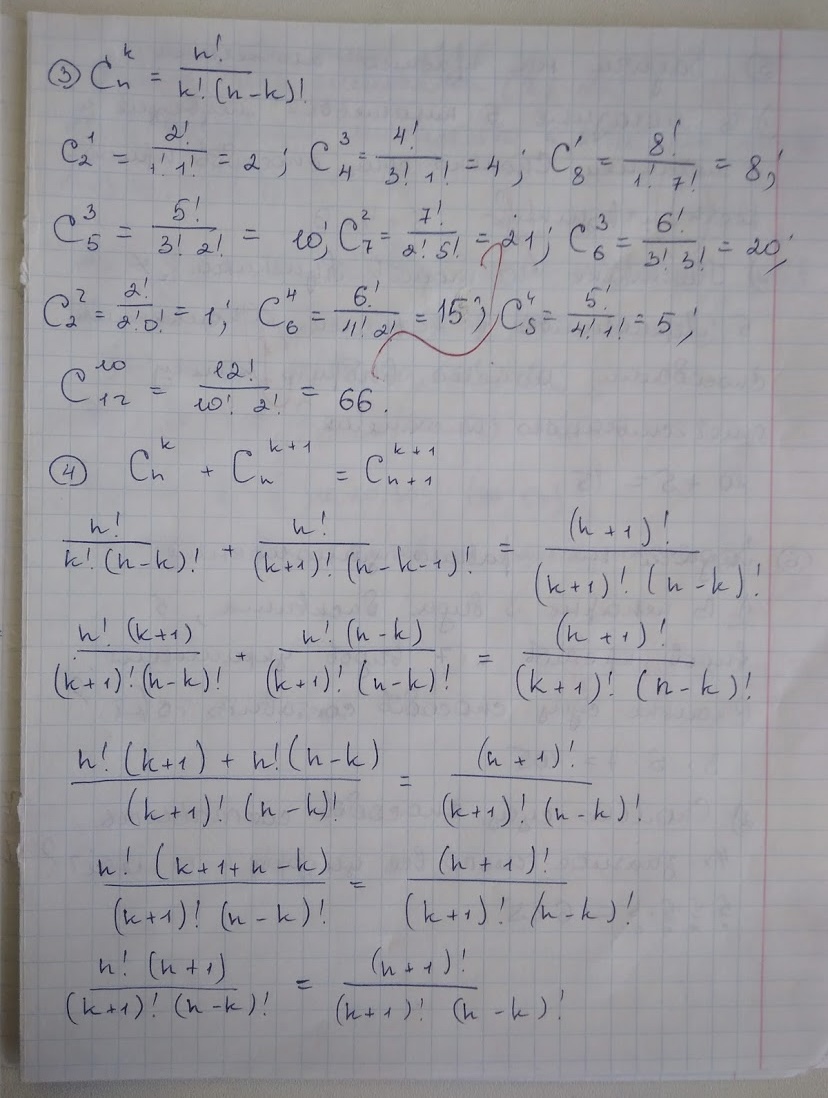 ③ Cₙᵏ = n! / k! (n-k)!
C₂¹ = 2! / 1! 1! = 2 ; C₄³ = 4! / 3! 1! = 4 ; C₈¹ = 8! / 1! 7! = 8 ;
C₅³ = 5! / 3! 2! = 10 ; C₇² = 7! / 2! 5! = 21 ; C₆³ = 6! / 3! 3! = 20 ;
C₂² = 2! / 2! 0! = 1 ; C₆⁴ = 6! / 4! 2! = 15 ; C₅⁴ = 5! / 4! 1! = 5 ;
C₁₂¹⁰ = 12! / 10! 2! = 66 .
④ Cₙᵏ + Cₙᵏ⁺¹ = Cₙ₊₁ᵏ⁺¹
n! / k! (n-k)! + n! / (k+1)! (n-k-1)! = (n+1)! / (k+1)! (n-k)!
n! (k+1) / (k+1)! (n-k)! + n! (n-k) / (k+1)! (n-k)! = (n+1)! / (k+1)! (n-k)!
n! (k+1) + n! (n-k) / (k+1)! (n-k)! = (n+1)! / (k+1)! (n-k)!
n! (k+1+n-k) / (k+1)! (n-k)! = (n+1)! / (k+1)! (n-k)!
n! (n+1) / (k+1)! (n-k)! = (n+1)! / (k+1)! (n-k)!